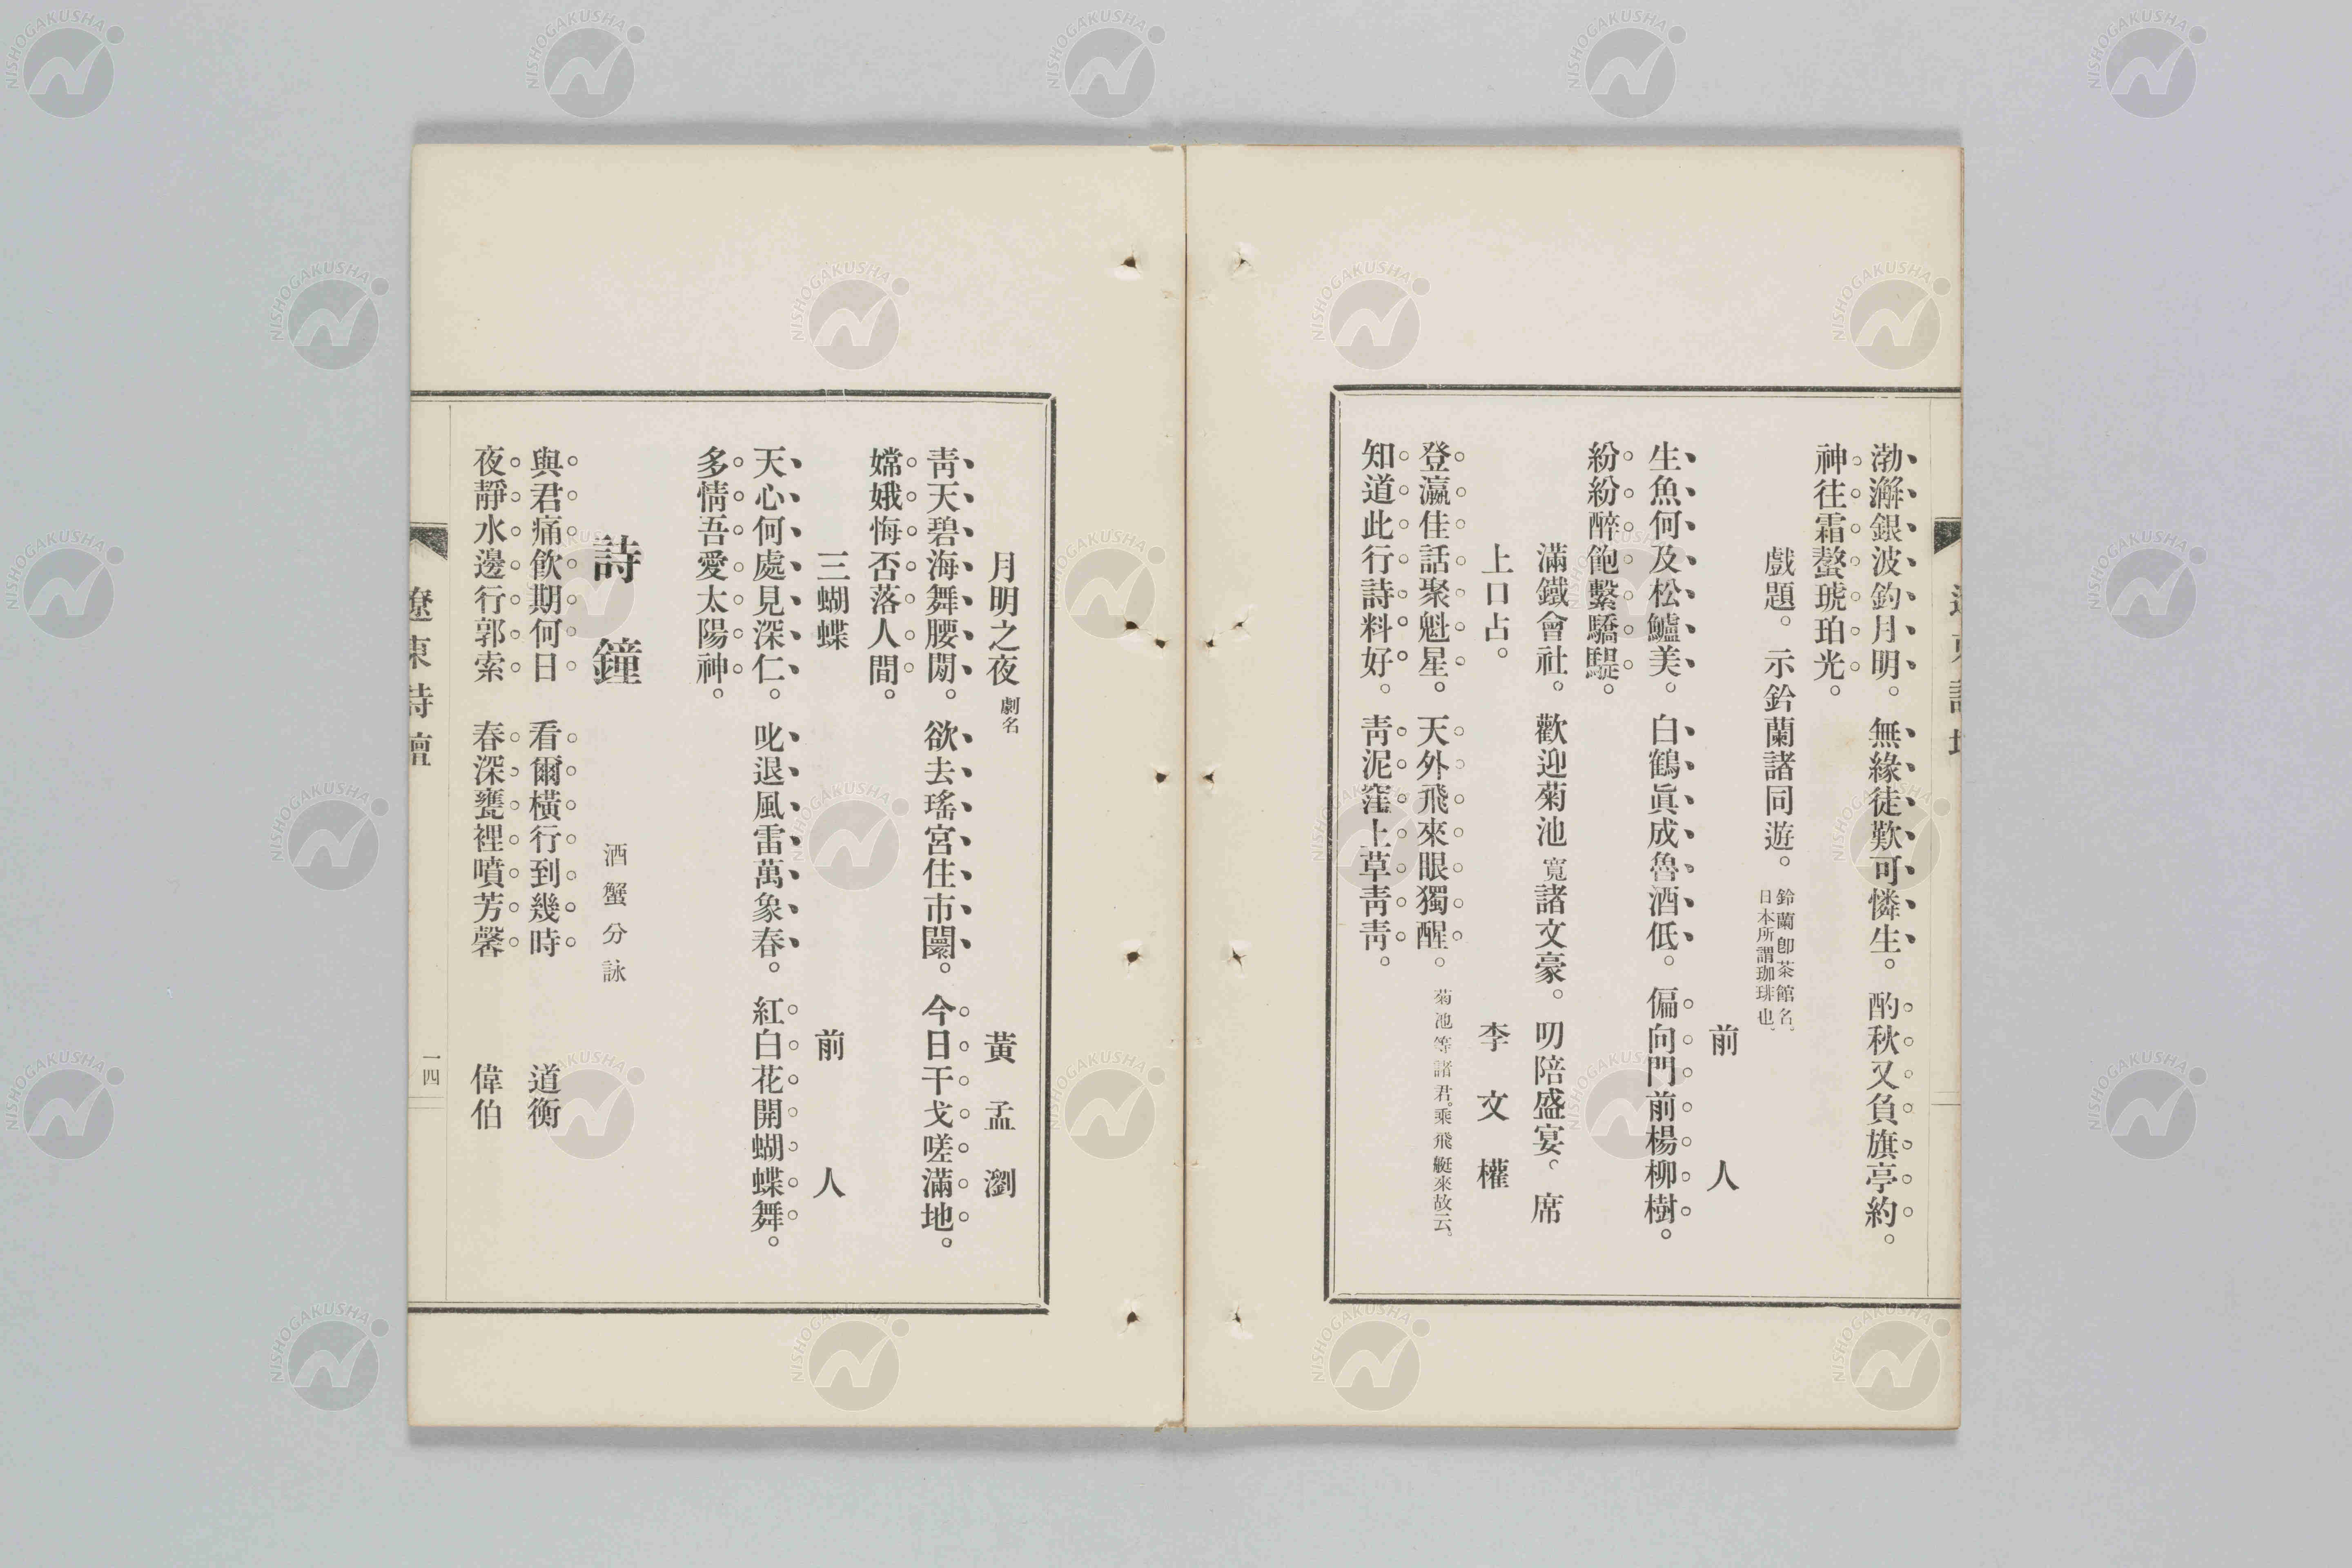 渤澥銀波釣月明。無緣徒歎可憐生。酌秋又負旗亭約。
神往霜螯琥珀光。
戲題。示鈴蘭諸同遊。鈴蘭卽茶館名。日本所謂珈琲也。
前人
生魚何及松鱸美。白鶴眞成魯酒低。偏向門前楊柳樹。
紛紛醉飽繫驕騠。
滿鐵會社。歡迎菊池寬諸文豪。叨陪盛宴。席
上口占。
李文權
登瀛佳話聚魁星。天外飛來眼獨醒。菊池等諸君。乘飛艇來故云。
知道此行詩料好。靑泥窪上草靑靑。
月明之夜劇名
黃孟瀏
靑天碧海舞腰閒。欲去瑤宮住市闤。今日干戈嗟滿地。
嫦娥悔否落人間。
三蝴蝶
前人
天心何處見深仁。叱退風雷萬象春。紅白花開蝴蝶舞。
多情吾愛太陽神。
詩鐘
酒蟹分詠
與君痛飮期何日 看爾橫行到幾時 道衡
夜靜水邊行郭索 春深甕裡噴芳馨 偉伯
遼東詩壇
一四
NISHOGAKUSHA